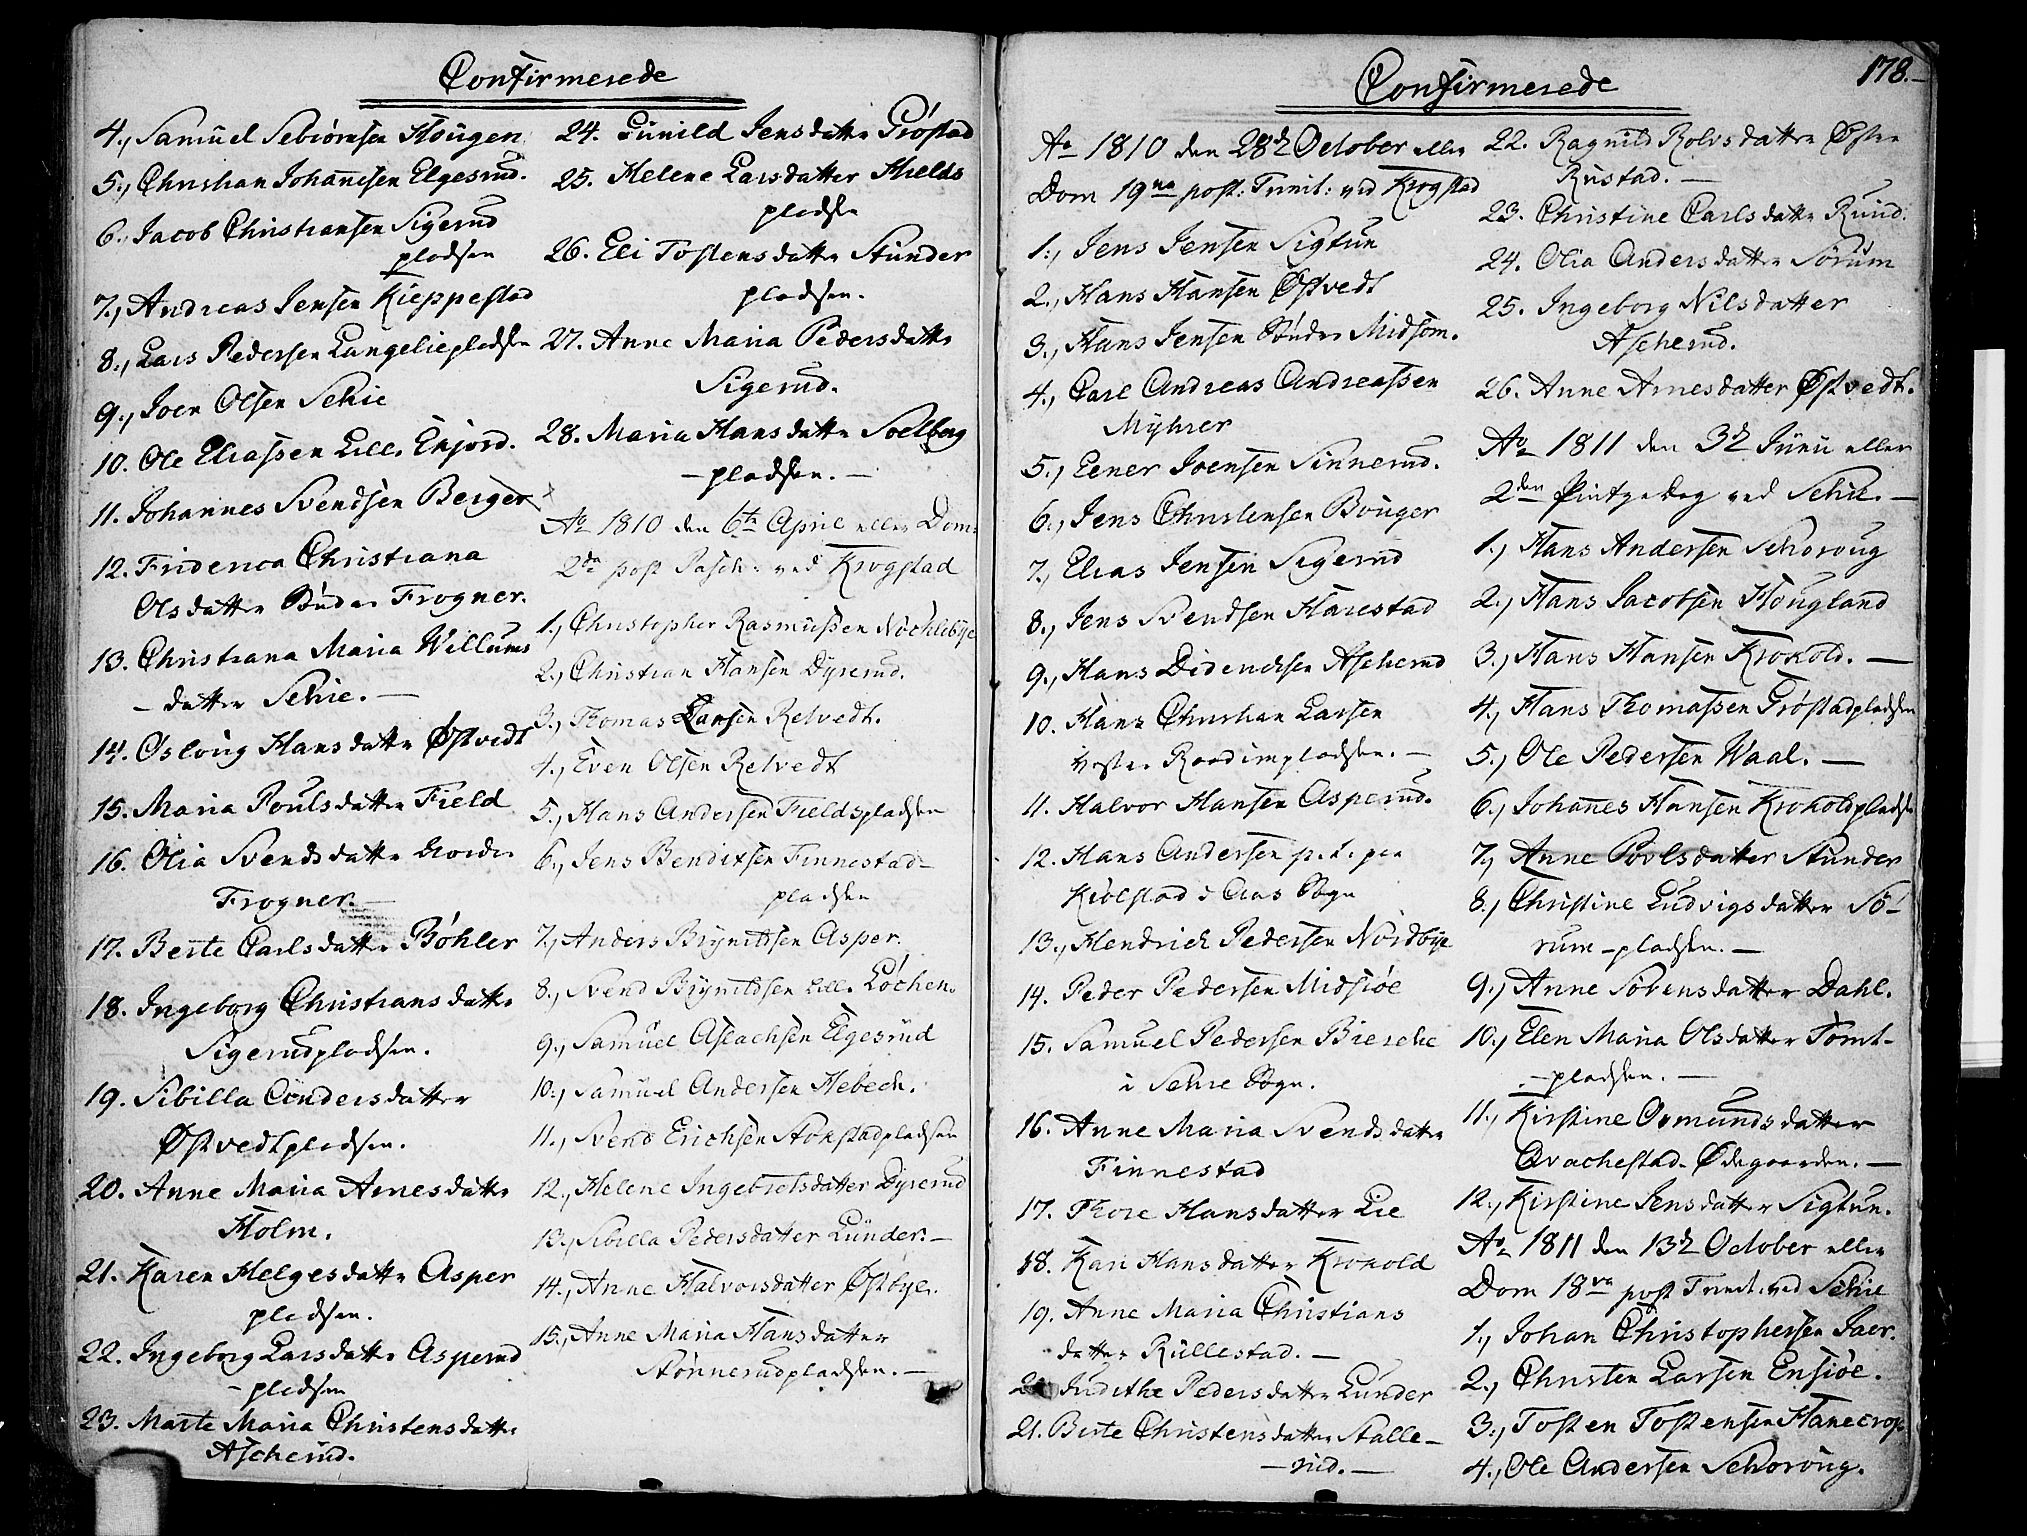 Confirmerede
4., Samuel Sebiørnsen Hougen
5., Christian Johannesen Elgesrud.
6., Jacob Christiansen Sigerud
pladsen
7., Andreas Jensen Kieppestad
8., Lars Pedersen Langeliepladsen
9., Joen Olsen Schie
10. Ole Eliassen Lille Enjord.
11. Johannes Svendsen Berger
12. Friderica Christiana
Olsdatter Søndre Frogner.
13. Christiana Maria Willums
- datter Schie. -
14. Osloug Hansdatter Østvedt
15. Maria Poulsdatter Field
16. Olia Svendsdatter Nordre
Frogner. -
17. Berte Carlsdatter Bøhler
18. Ingeborg Christiansdatter
Sigerudpladsen.
19. Sibilla Andersdatter
Østvedtpladsen.
20. Anne Maria Arnesdatter
Holm.
21. Karen Helgesdatter Asper
pladsen.
22. Ingeborg Larsdatter Asperud
- pladsen
23. Marte Maria Christensdatter
Ascherud.
24. Gunild Jensdatter Grøstad
25. Helene Larsdatter Fields
pladsen
26. Eli Tostensdatter Stunder
pladsen.
27. Anne Maria Pedersdatter
Sigerud.
28. Maria Hansdatter Soelberg
- pladsen. -
Ao 1810 den 6te April eller Dom:
2da post Pasch: ved Krogstad
1., Christopher Rasmussen Nøchlebye
2., Christian Hansen Dyrerud.
3., Thomas Larsen Retvedt.
4., Even Olsen Retvedt
5., Hans Andersen Fieldspladsen
6., Jens Bendixsen Finnestad-
pladsen
7., Anders Brynildsen Asper.
8., Svend Brynildsen Lille Løchen.
9., Samuel Aslachsen Elgesrud
10., Samuel Andersen Hebech.
11., Svend Erichsen Stokstadpladsen
12., Helene Ingebretsdatter Dyrerud
13., Sibilla Pedersdatter Lunder. -
14., Anne Halvorsdatter Østbye.
15., Anne Maria Hansdatter
Stønnerudpladsen. -
Confirmerede
178. -
Ao 1810 den 28d October eller
Dom 19na post: Trinit: ved Krogstad
1., Jens Jensen Sigtun
2., Hans Hansen Østvedt
3., Hans Jensen Søndre Midsom.
4., Carl Andreas Andreassen
Myhrer
5., Eener Joensen Sinnerud.
6., Jens Christensen Bouger
7., Elias Jensen Sigerud
8., Jens Svendsen Harestad
9., Hans Diderichsen Ascherud
10. Hans Christian Larsen
Vestre Roadimpladsen. -
11. Halvor Hansen Asperud.
12. Hans Andersen p. t. paa
Kiølstad i Aas Sogn
13., Hendrich Pedersen Nordbye
14. Peder Pedersen Midsiøe
15. Samuel Pedersen Biercke
i Schie Sogn.
16. Anne Maria Svendsdatter
Finnestad
17. Thore Hansdatter Lie
18. Kari Hansdatter Krokold
19. Anne Maria Christians
datter Rullestad. -
Judithe Pedersdatter Lunder
21. Berte Christensdatter Stalle-
- rud. -
22. Ragnild Rolvsdatter Østre
Rustad. -
23. Christine Carlsdatter Rund.
24. Olia Andersdatter Sørum
25. Ingeborg Nilsdatter
Ascherud.
26. Anne Arnesdatter Østvedt.
Ao 1811 den 3d Junii eller
2den Pintzedag ved Schie. -
1., Hans Andersen Schoroug
2., Hans Jacobsen Hougland
3., Hans Hansen Krokold. -
4., Hans Thomassen Grøstadpladsen
5., Ole Pedersen Waal. -
6., Johannes Hansen Krokoldpladsen
7., Anne Povlsdatter Stunder
8., Christine Ludvigsdatter Sø-
rum-pladsen. -
9., Anne Sørensdatter Dahl.
10., Elen Maria Olsdatter Tomt-
- pladsen. -
11., Kirstine Osmundsdatter
Qvachestad-Ødegaarden. -
12., Kirstine Jensdatter Sigtun.
Ao 1811 den 13d October eller
Dom 18va post Trinit. ved Schie
1., Johan Christophersen Jaer.
2., Christen Larsen Ensiøe.
3., Tosten Tostensen Hanecrog
4., Ole Andersen Schoroug.